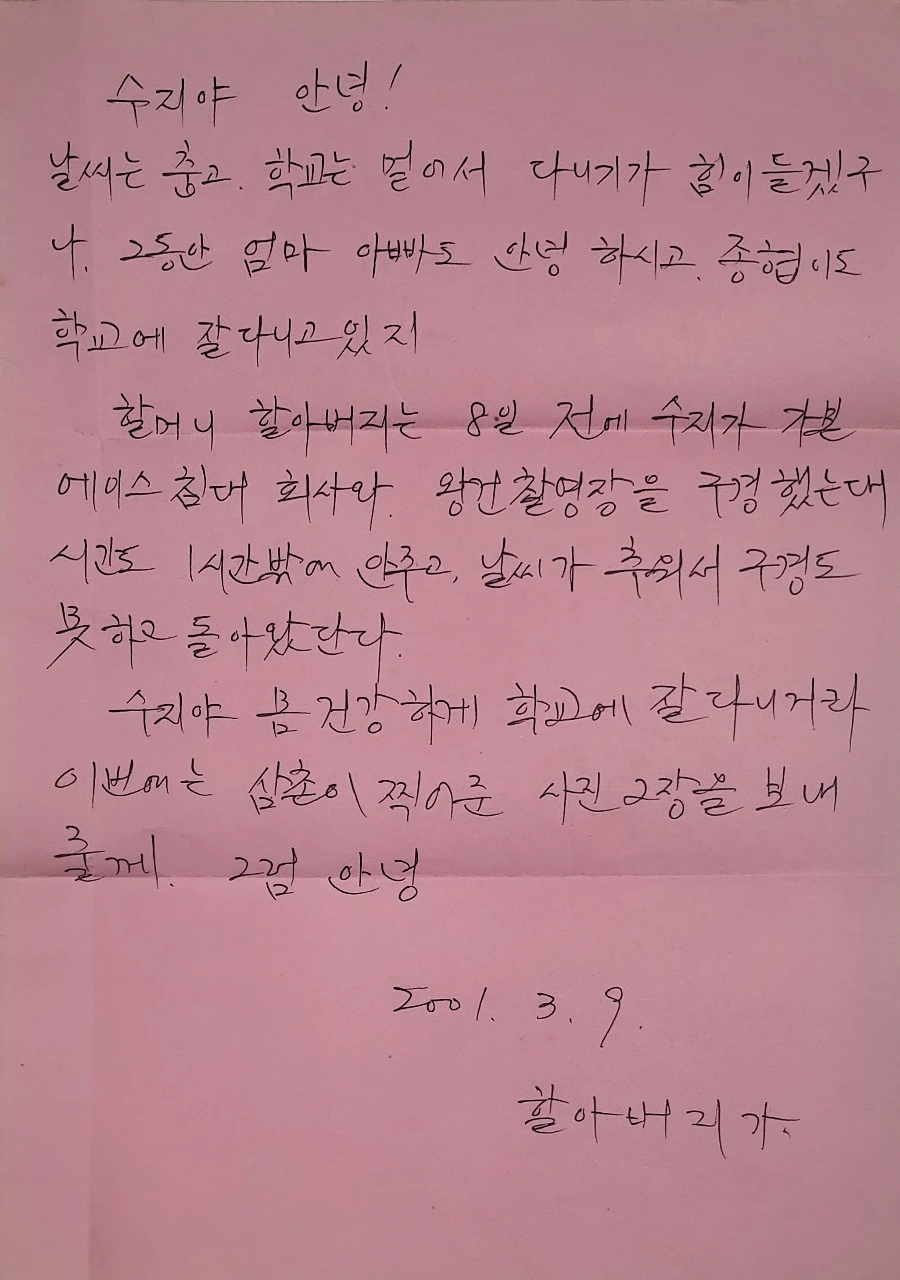 수지야 안녕!
날씨는 춥고. 학교는 멀어서 다니기가 힘이들겠구
나. 그동안 엄마 아빠도 안녕 하시고. 종협이도
학교에 잘다니고있지
할머니 할아버지는 8일 전에 수지가 가본
에이스침대 회사와. 왕건촬영장을 구경했는대
시간도 1시간밖에 안주고, 날씨가 추워서 구경도
못하고 돌아왔단다.
수지야 몸건강하게 학교에 잘다니거라
이번에는 삼촌이 찍어준 사진2장을 보내
줄께. 그럼 안녕
2001. 3. 9.
할아버지가.